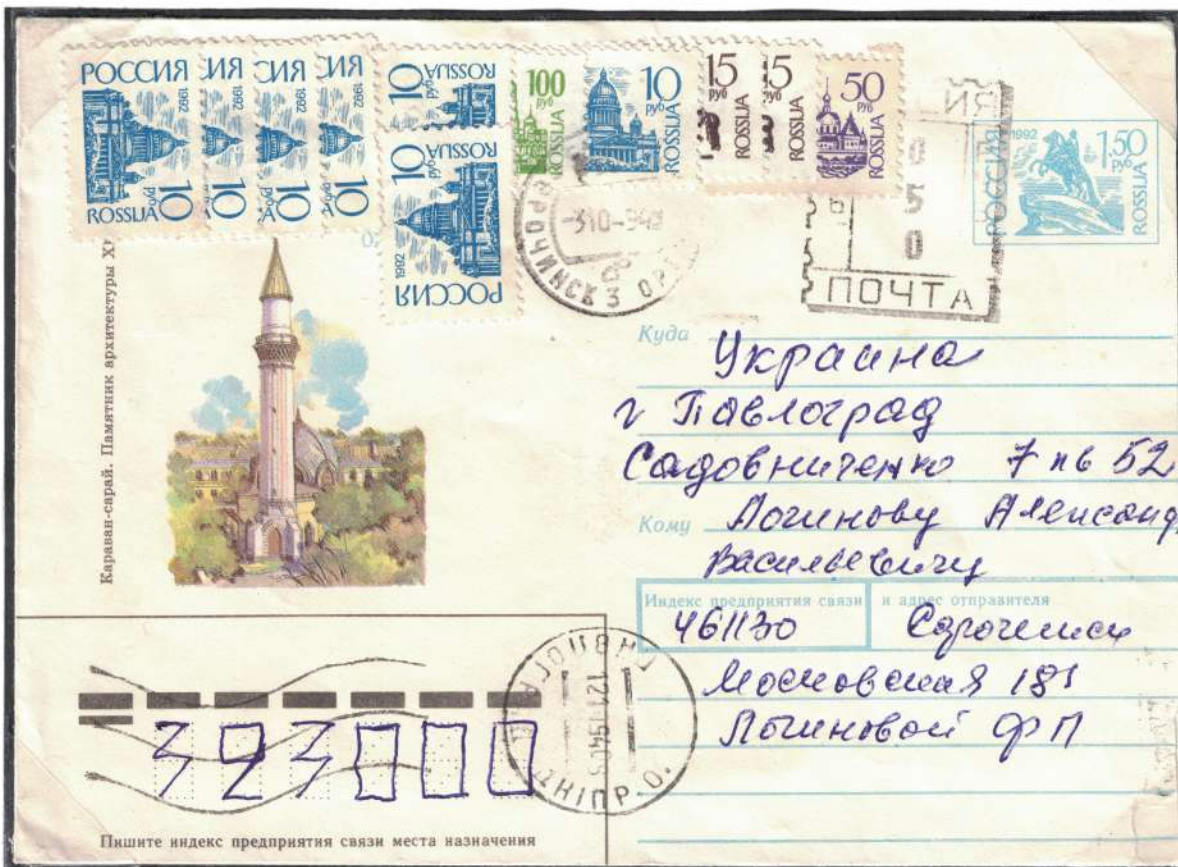 РОССИЯ
1992
10 руб
ROSSIJA
ИЯ
1992
10
СИЯ
1992
10
ИЯ
1992
10
10 руб
ROSSIJA
10 руб
ROSSIJA
1992
РОССИЯ
100 руб
ROSSIJA
10 руб
ROSSIJA
15 руб
ROSSIJA
5 руб
ROSSIJA
50 руб
ROSSIJA
ИЯ
0
5
0
ПОЧТА
РОССИЯ
1992
1,50 руб
ROSSIJA
РОЧИНСК 3 ОР
Караван-сарай. Памятник архитектуры
Куда Украина
г Павлоград
Садовниченко 7 кв 52
Кому Логинову Александ
Васильевичу
Индекс предприятия связи и адрес отправителя
461130 Сорочинск
Московская 181
Логиновой ФП
ДНІПР.О.
323000
Пишите индекс предприятия связи места назначения